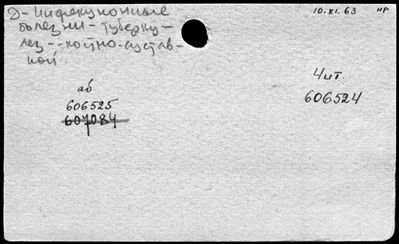 Д-инфекционные
болезни-туберку-
лез--костно-сустав-
ной
10.XI.63 НР
Чит.
606524
аб
606525
607084